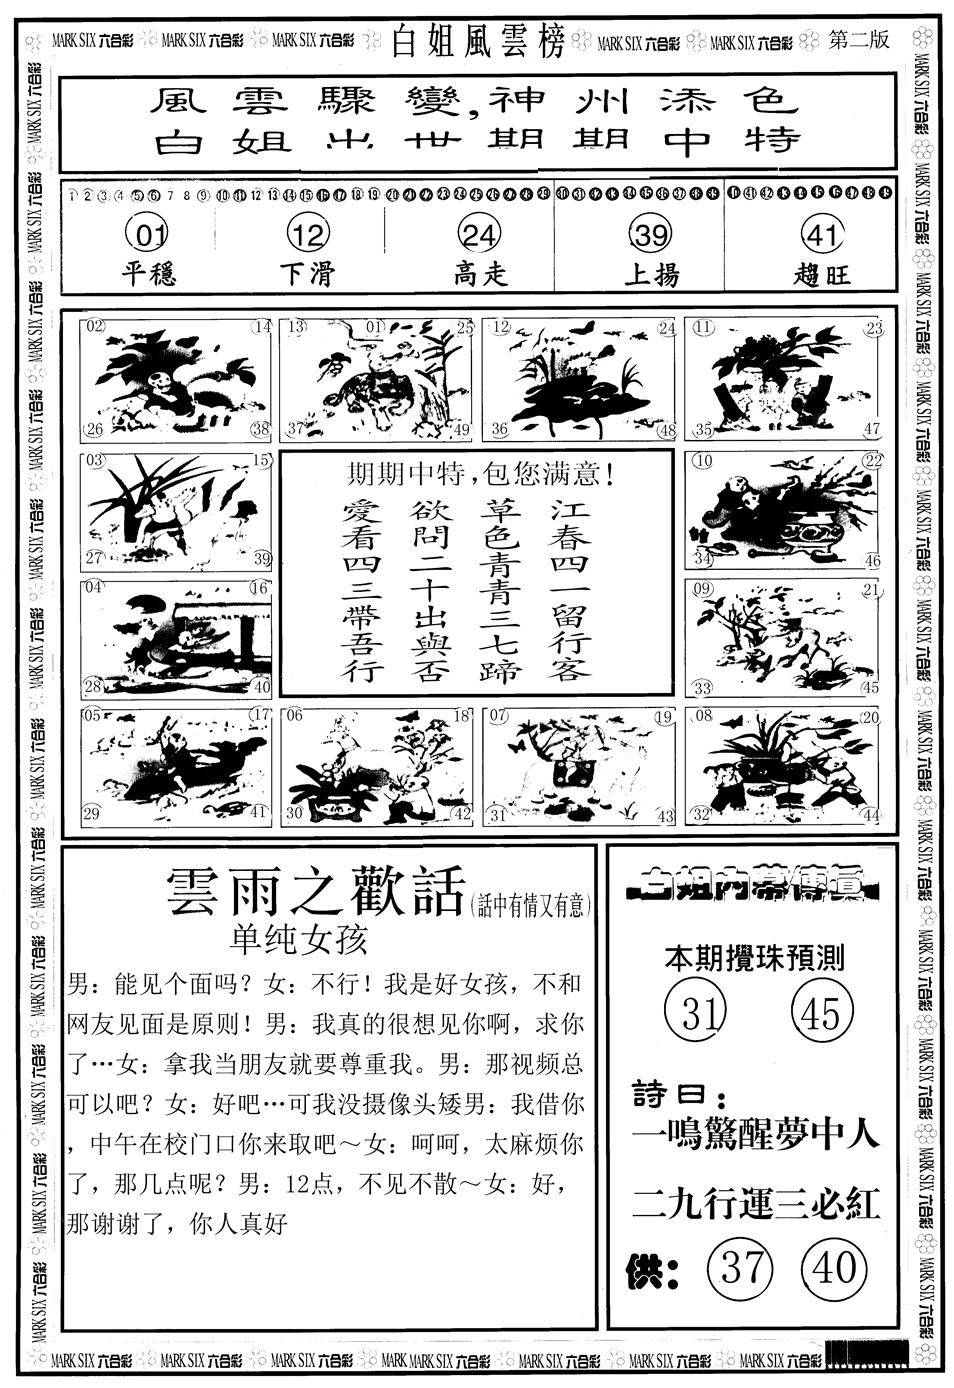 MARK SIX 六合彩 MARK SIX 六合彩 MARK SIX 六合彩 白姐風雲榜 MARK SIX 六合彩 MARK SIX 六合彩 第二版
風雲驟變,神州添色
白姐出世期期中特
1 2 3 4 5 6 7 8 9 10 11 12 13 14 15 16 17 18 19 20 21 22 23 24 25 26 27 28 29 30 31 32 33 34 35 36 37 38 39 40 41 42 43 44 45 46 47 48 49
01 12 24 39 41
平穩 下滑 高走 上揚 趨旺
02 14 13 01 25 12 24 11 23
26 38 37 49 36 48 35 47
03 15 10 22
27 39 34 46
04 16 09 21
28 40 33 45
期期中特,包您满意!
江春四一留行客
草色青青三七蹄
欲問二十出與否
愛看四三帶吾行
05 17 06 18 07 19 08 20
29 41 30 42 31 43 32 44
雲雨之歡話(話中有情又有意)
单纯女孩
男：能见个面吗？女：不行！我是好女孩，不和
网友见面是原则！男：我真的很想见你啊，求你
了…女：拿我当朋友就要尊重我。男：那视频总
可以吧？女：好吧…可我没摄像头矮男：我借你
，中午在校门口你来取吧～女：呵呵，太麻烦你
了，那几点呢？男：12点，不见不散～女：好，
那谢谢了，你人真好
白姐内幕傳真
本期攪珠預測
31 45
詩曰：
一鳴驚醒夢中人
二九行運三必紅
供：37 40
MARK SIX 六合彩 MARK SIX 六合彩 MARK SIX 六合彩 MARK MARK SIX 六合彩 MARK SIX 六合彩 MARK SIX 六合彩 MARK SIX 六合彩